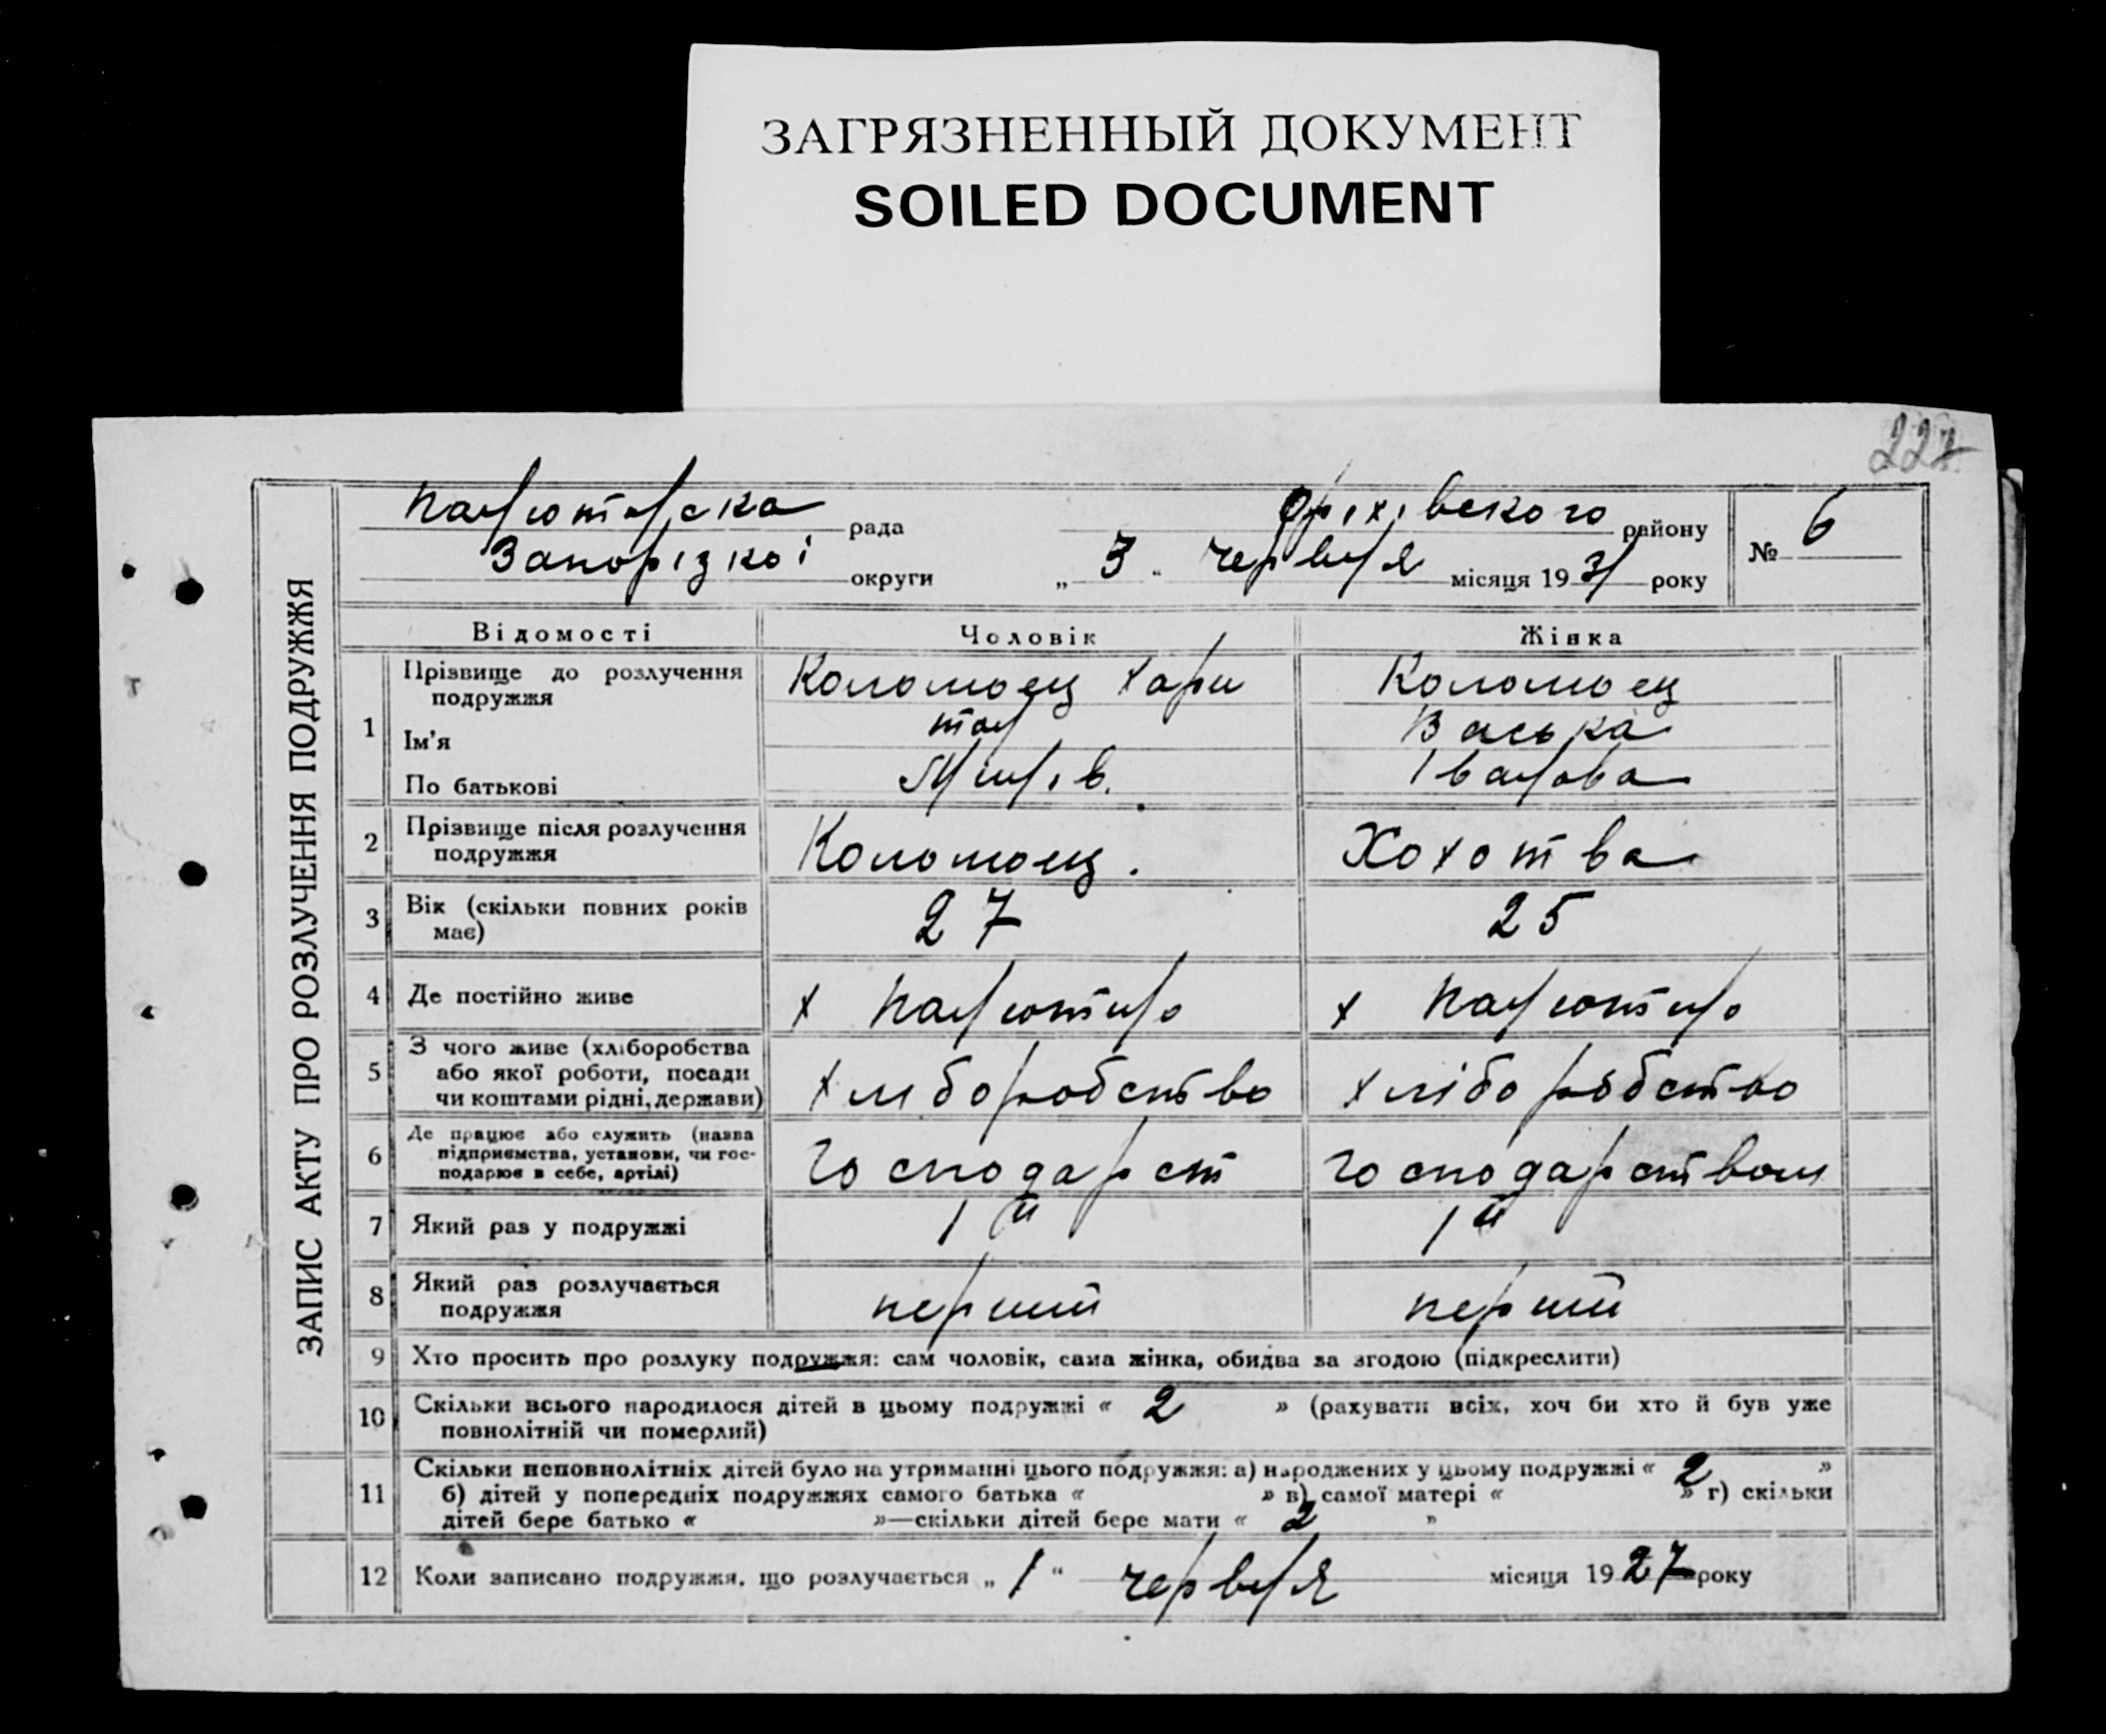 ЗАГРЯЗНЕННЫЙ ДОКУМЕНТ
SOILED DOCUMENT
227
ЗАПИС АКТУ ПРО РОЗЛУЧЕННЯ ПОДРУЖЖЯ
рада Оріхівского району
Запорізкоі округи „ 3 " червня місяця 1931 року
№ 6
Відомості Чоловік Жінка
1 Прізвище до розлучення подружжя Коломоец Хари Коломоец
Ім'я тон Васька
По батькові Іванова
2 Прізвище після розлучення Коломоец. Хохотва
подружжя
3 Вік (скільки повних років 27 25
має)
4 Де постійно живе х х
5 З чого живе (хліборобства
або якої роботи, посади хліборобство хліборобство
чи коштами рідні, держави)
6 Де працює або служить (назва
підприємства, установи, чи гос- господарст господарством
подарює в себе, артілі)
7 Який раз у подружжі 1й 1й
8 Який раз розлучається перший перший
подружжя
9 Хто просить про розлуку подружжя: сам чоловік, сама жінка, обидва за згодою (підкреслити)
10 Скільки всього народилося дітей в цьому подружжі « 2 » (рахувати всіх, хоч би хто й був уже
повнолітній чи померлий)
11 Скільки неповнолітніх дітей було на утриманні цього подружжя: а) народжених у цьому подружжі « 2 »
б) дітей у попередніх подружжях самого батька « » в) самої матері « » г) скільки
дітей бере батько « »—скільки дітей бере мати « 2 »
12 Коли записано подружжя, що розлучається „ 1 " червня місяця 1927 року